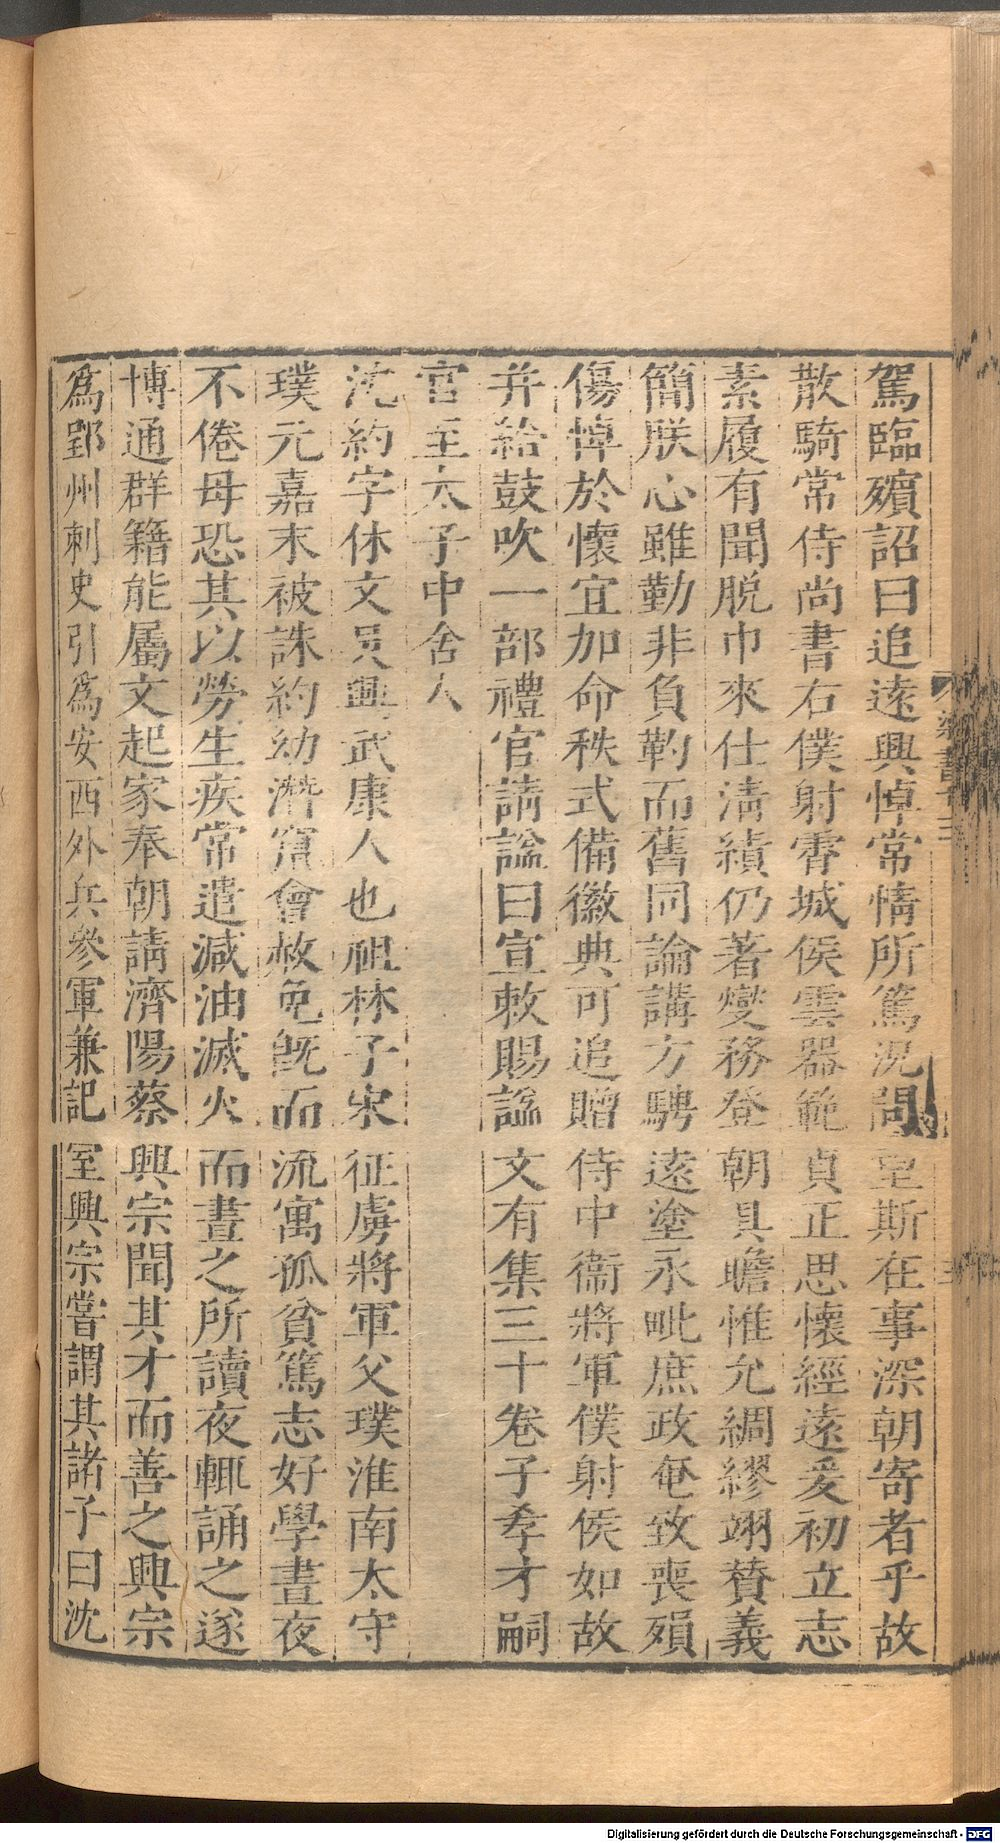 駕臨殯詔曰追遠興悼常情所篤況問望斯在事深朝寄者乎故
散騎常侍尚書右僕射霄城侯雲器範貞正思懷經遠爰初立志
素履有聞脫巾來仕淸績仍著燮務登朝具瞻惟允綢繆翊贊義
簡朕心雖勤非負靮而舊同論講方騁遠塗永毗庶政奄致喪殞
傷悼於懷宜加命秩式備徽典可追贈侍中衞將軍僕射侯如故
并給鼓吹一部禮官請諡曰宣敕賜諡文有集三十卷子孝才嗣
官至太子中舍人
沈約字休文吳興武康人也祖林子宋征虜將軍父璞淮南太守
璞元嘉末被誅約幼潛竄會赦免旣而流寓孤貧篤志好學晝夜
不倦母恐其以勞生疾常遣減油滅火而晝之所讀夜輒誦之遂
博通群籍能屬文起家奉朝請濟陽蔡興宗聞其才而善之興宗
爲郢州刺史引爲安西外兵參軍兼記室興宗嘗謂其諸子曰沈
梁書十三
Digitalisierung gefördert durch die Deutsche Forschungsgemeinschaft - DFG